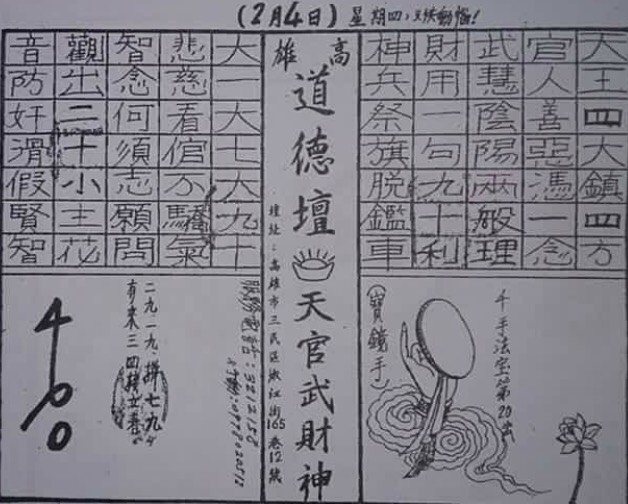 (2月4日) 星期四，
天王四大鎮四方
官人善惡憑一念
武慧陰陽兩般理
財用一句九十利
神兵祭旗脫鑑車
千手法宝第20
(寶鏡手)
高雄
道德壇 天官武財神
壇址：高雄市三民區 江街165巷12號
大一大七大九十
悲慈看倌不驕氣
智念何須志願問
觀出二十小主花
音防奸滑假賢智
服務電話：3212158
二九一九、拼七九
有來三四
400